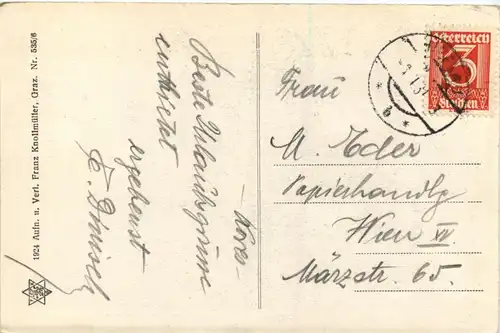 1924 Aufn. u. Verl. Franz Knollmüller, Graz. Nr. 535/6
Beste Urlaubsgrüsse
entbietet
ergebenst
Österreich
3
Groschen
Frau
M. Eder
Papierhandlg
Wien XV
Märzstr. 65.